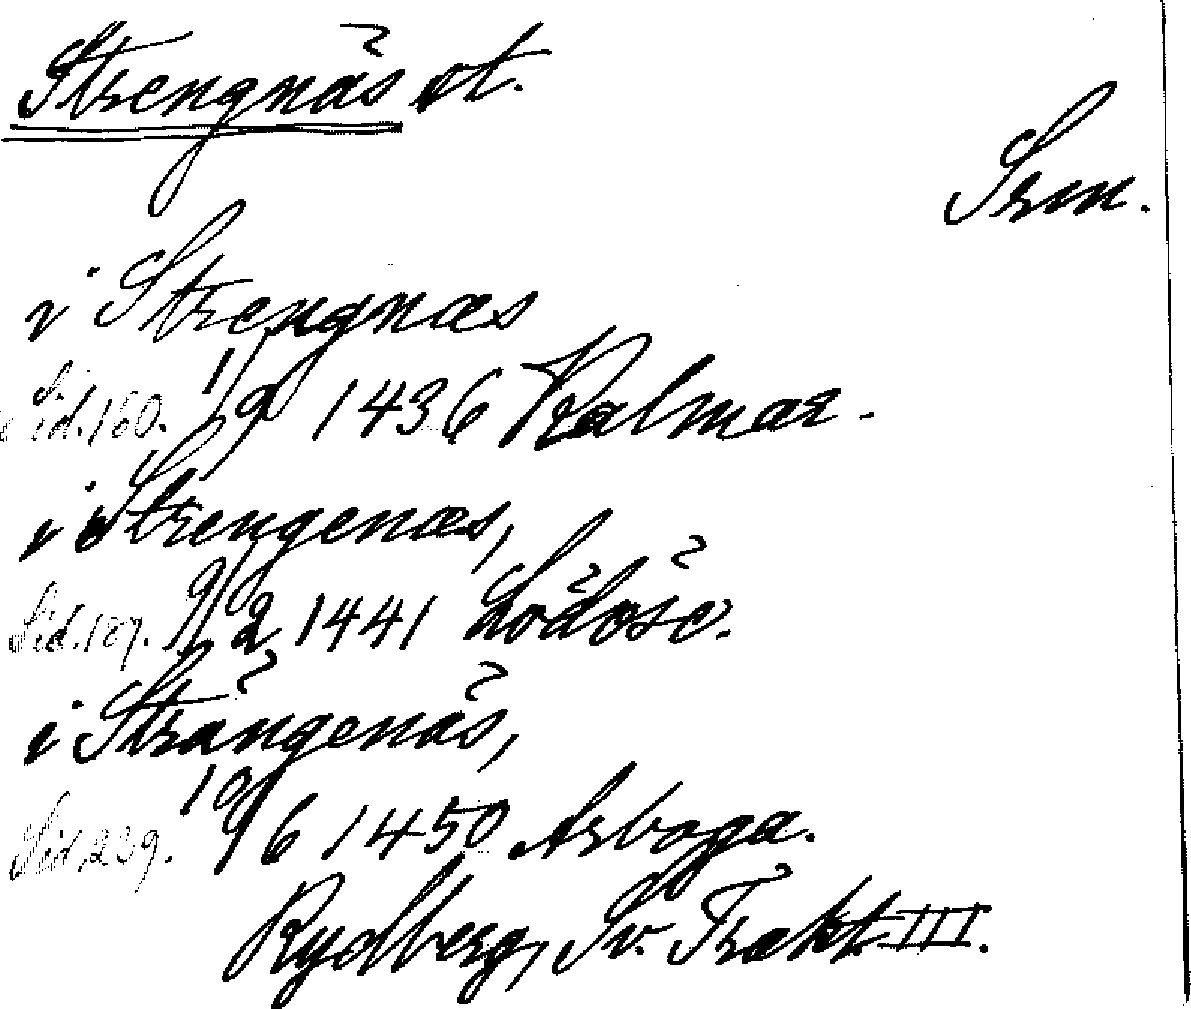 Strengnäs st.
Srm.
i Strengnæs
Sid. 160. 1/9 1436 Kalmar.
i Strengenæs,
Sid. 187. 9/2 1441 Lödöse.
i Strängenäs,
Sid. 239. 10/6 1450 Arboga.
Rydberg, Sv. Trakt. III.